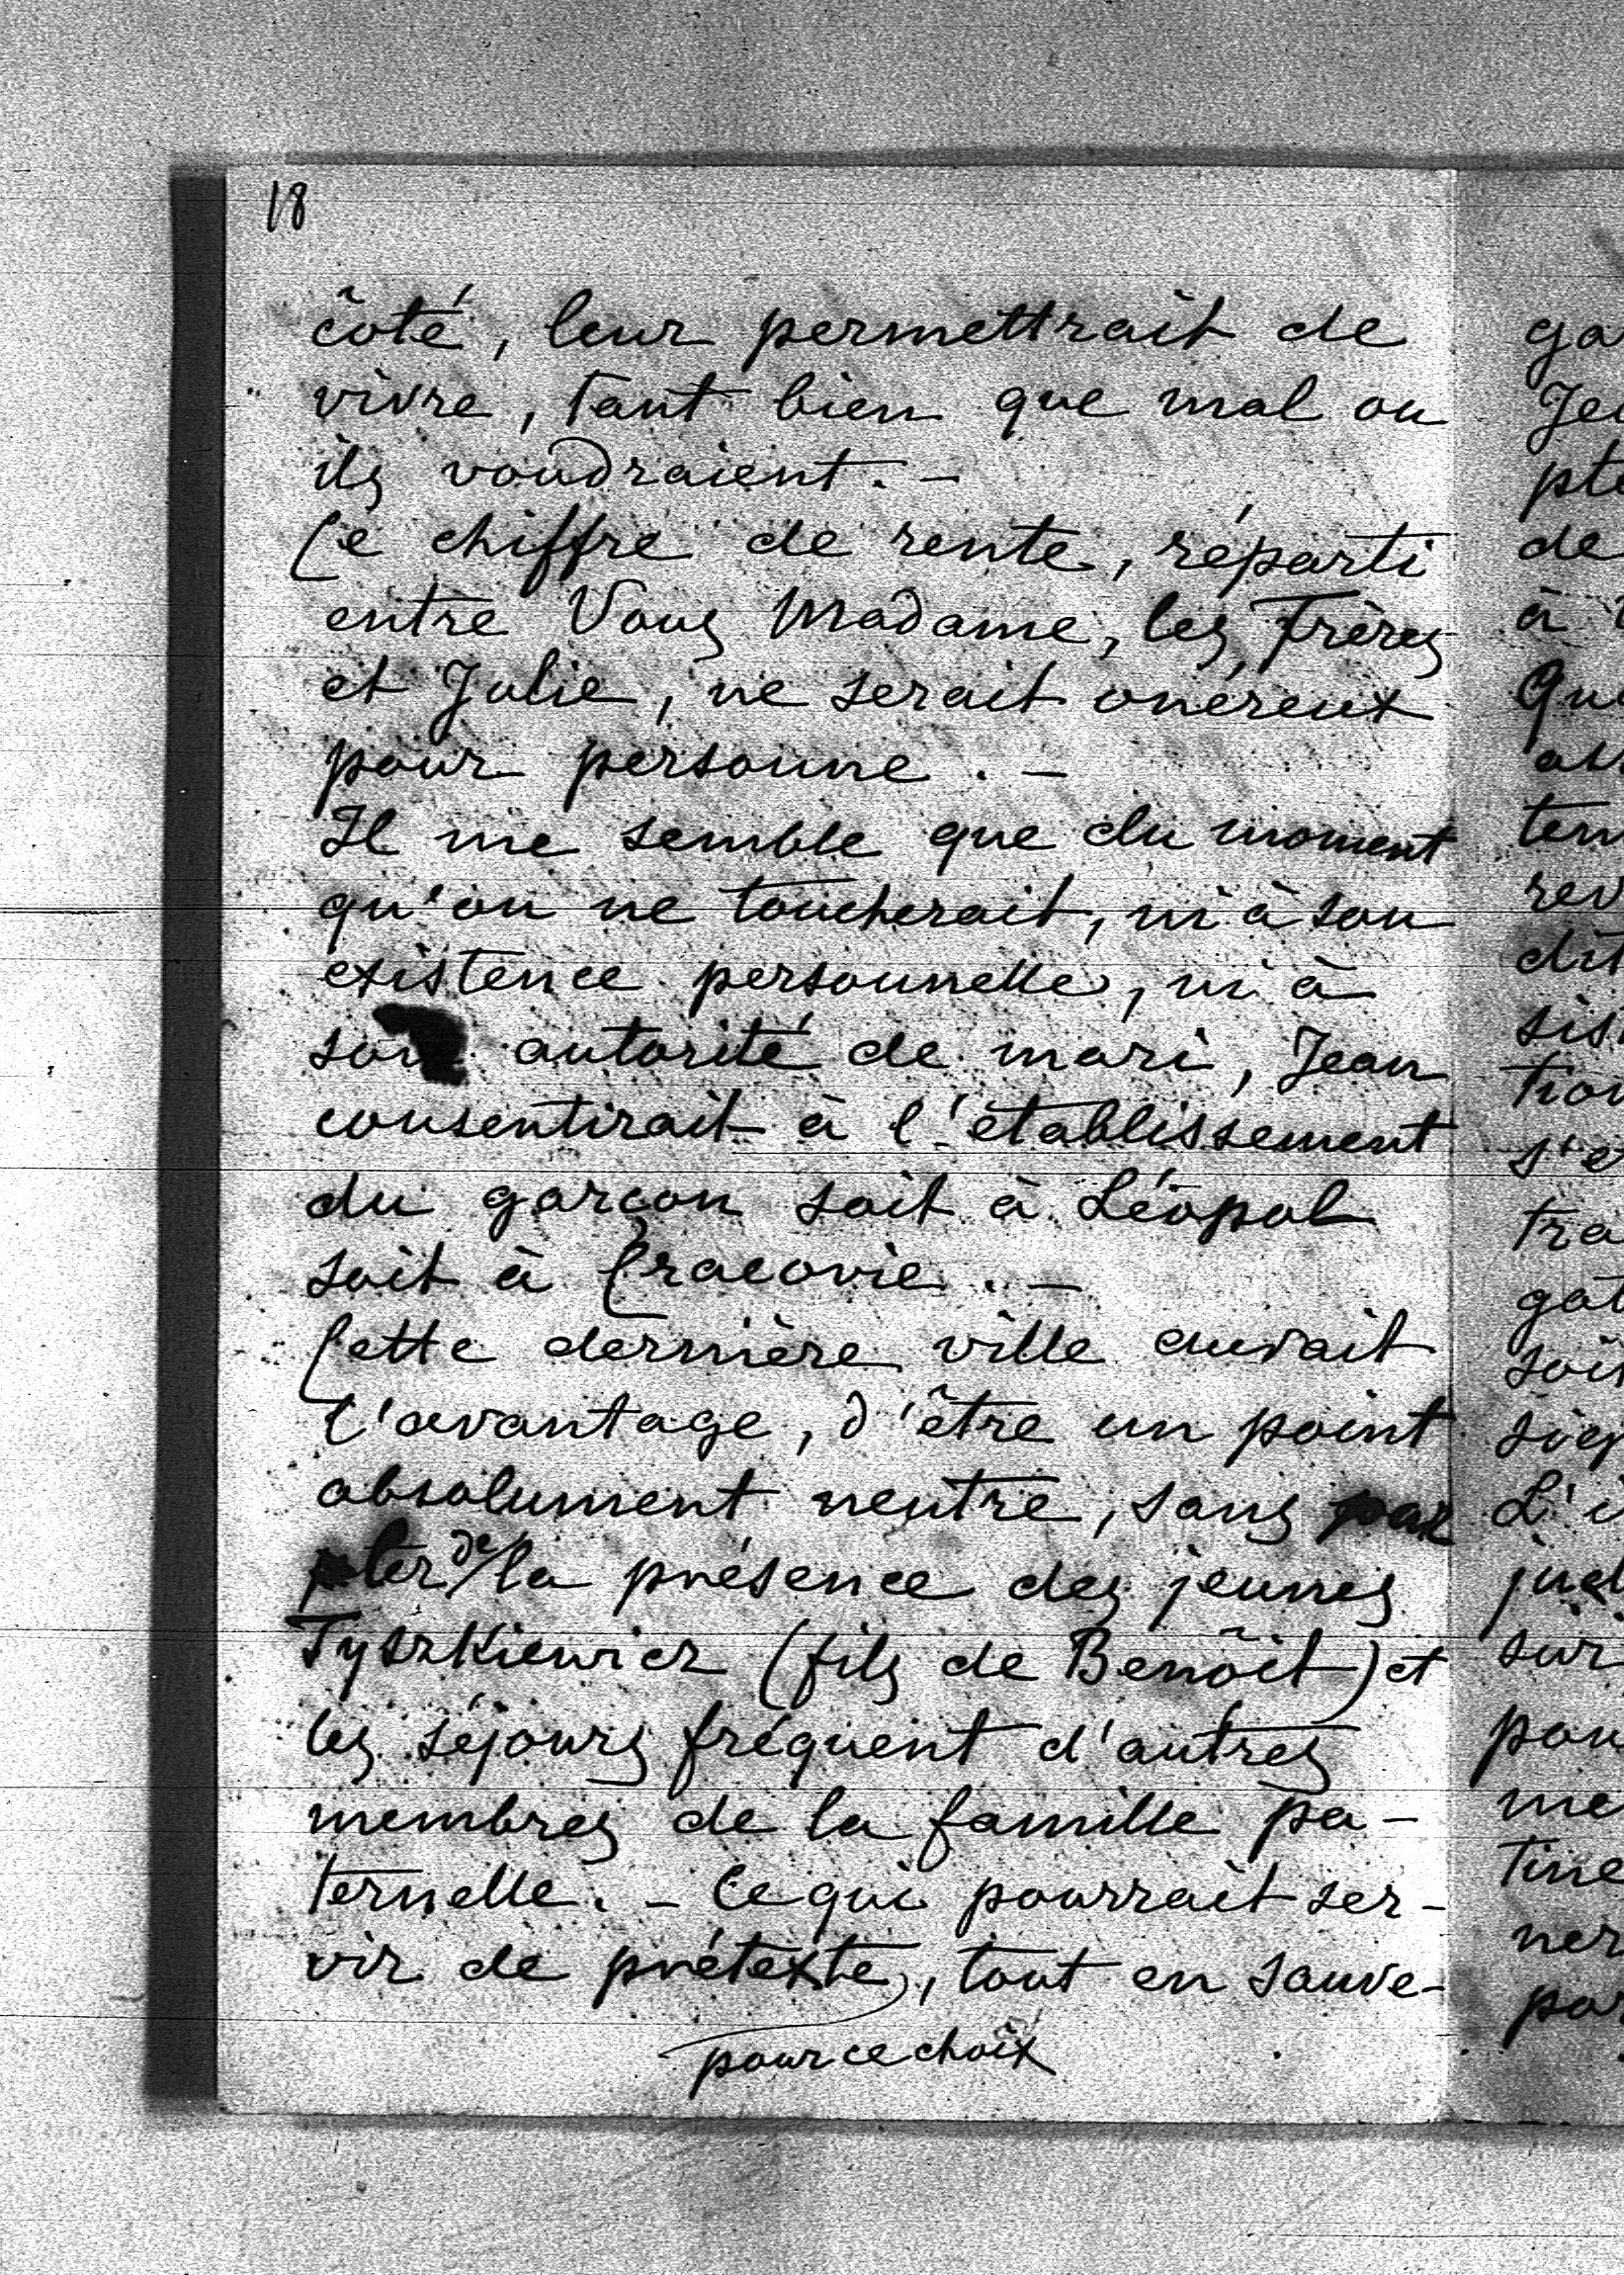 18
côté, leur permettrait de
vivre, tant bien que mal ou
ils voudraient. –
Ce chiffre de rente, réparti
entre Vous Madame, les frères
et Julie, ne serait onéreux
pour personne. –
Il me semble que du moment
qu'on ne toucherait, ni à son
existence personnelle, ni à
son autorité de mari, Jean
consentirait à l'établissement
du garçon soit à Léopol
soit à Cracovie. –
Cette dernière ville aurait
l'avantage, d'être un point
absolument neutre, sans par
ler de la présence des jeunes
Tyszkiewicz (fils de Benôit) et
les séjours fréquent d'autres
membres de la famille pa-
ternelle. – Ce qui pourrait ser-
vir de prétexte, tout en sauve-
pour ce choix
ga
Je
pte
de
à
Qu
ab
tem
rev
dit
sis
tion
s'e
tra
gat
soi
sig
L'i
jus
sur
pou
me
tine
ner
par